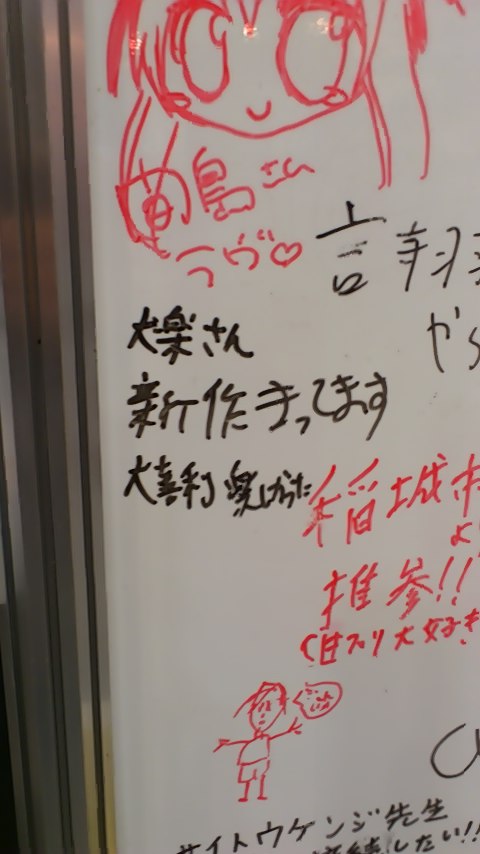 菌島さん
ラヴ♡
言翔
から
犬楽さん
新作まってます
大喜利楽しかった
稲城市
より
推参!!
甘ブリ大好き
サイトウケンジ先生
したい!!